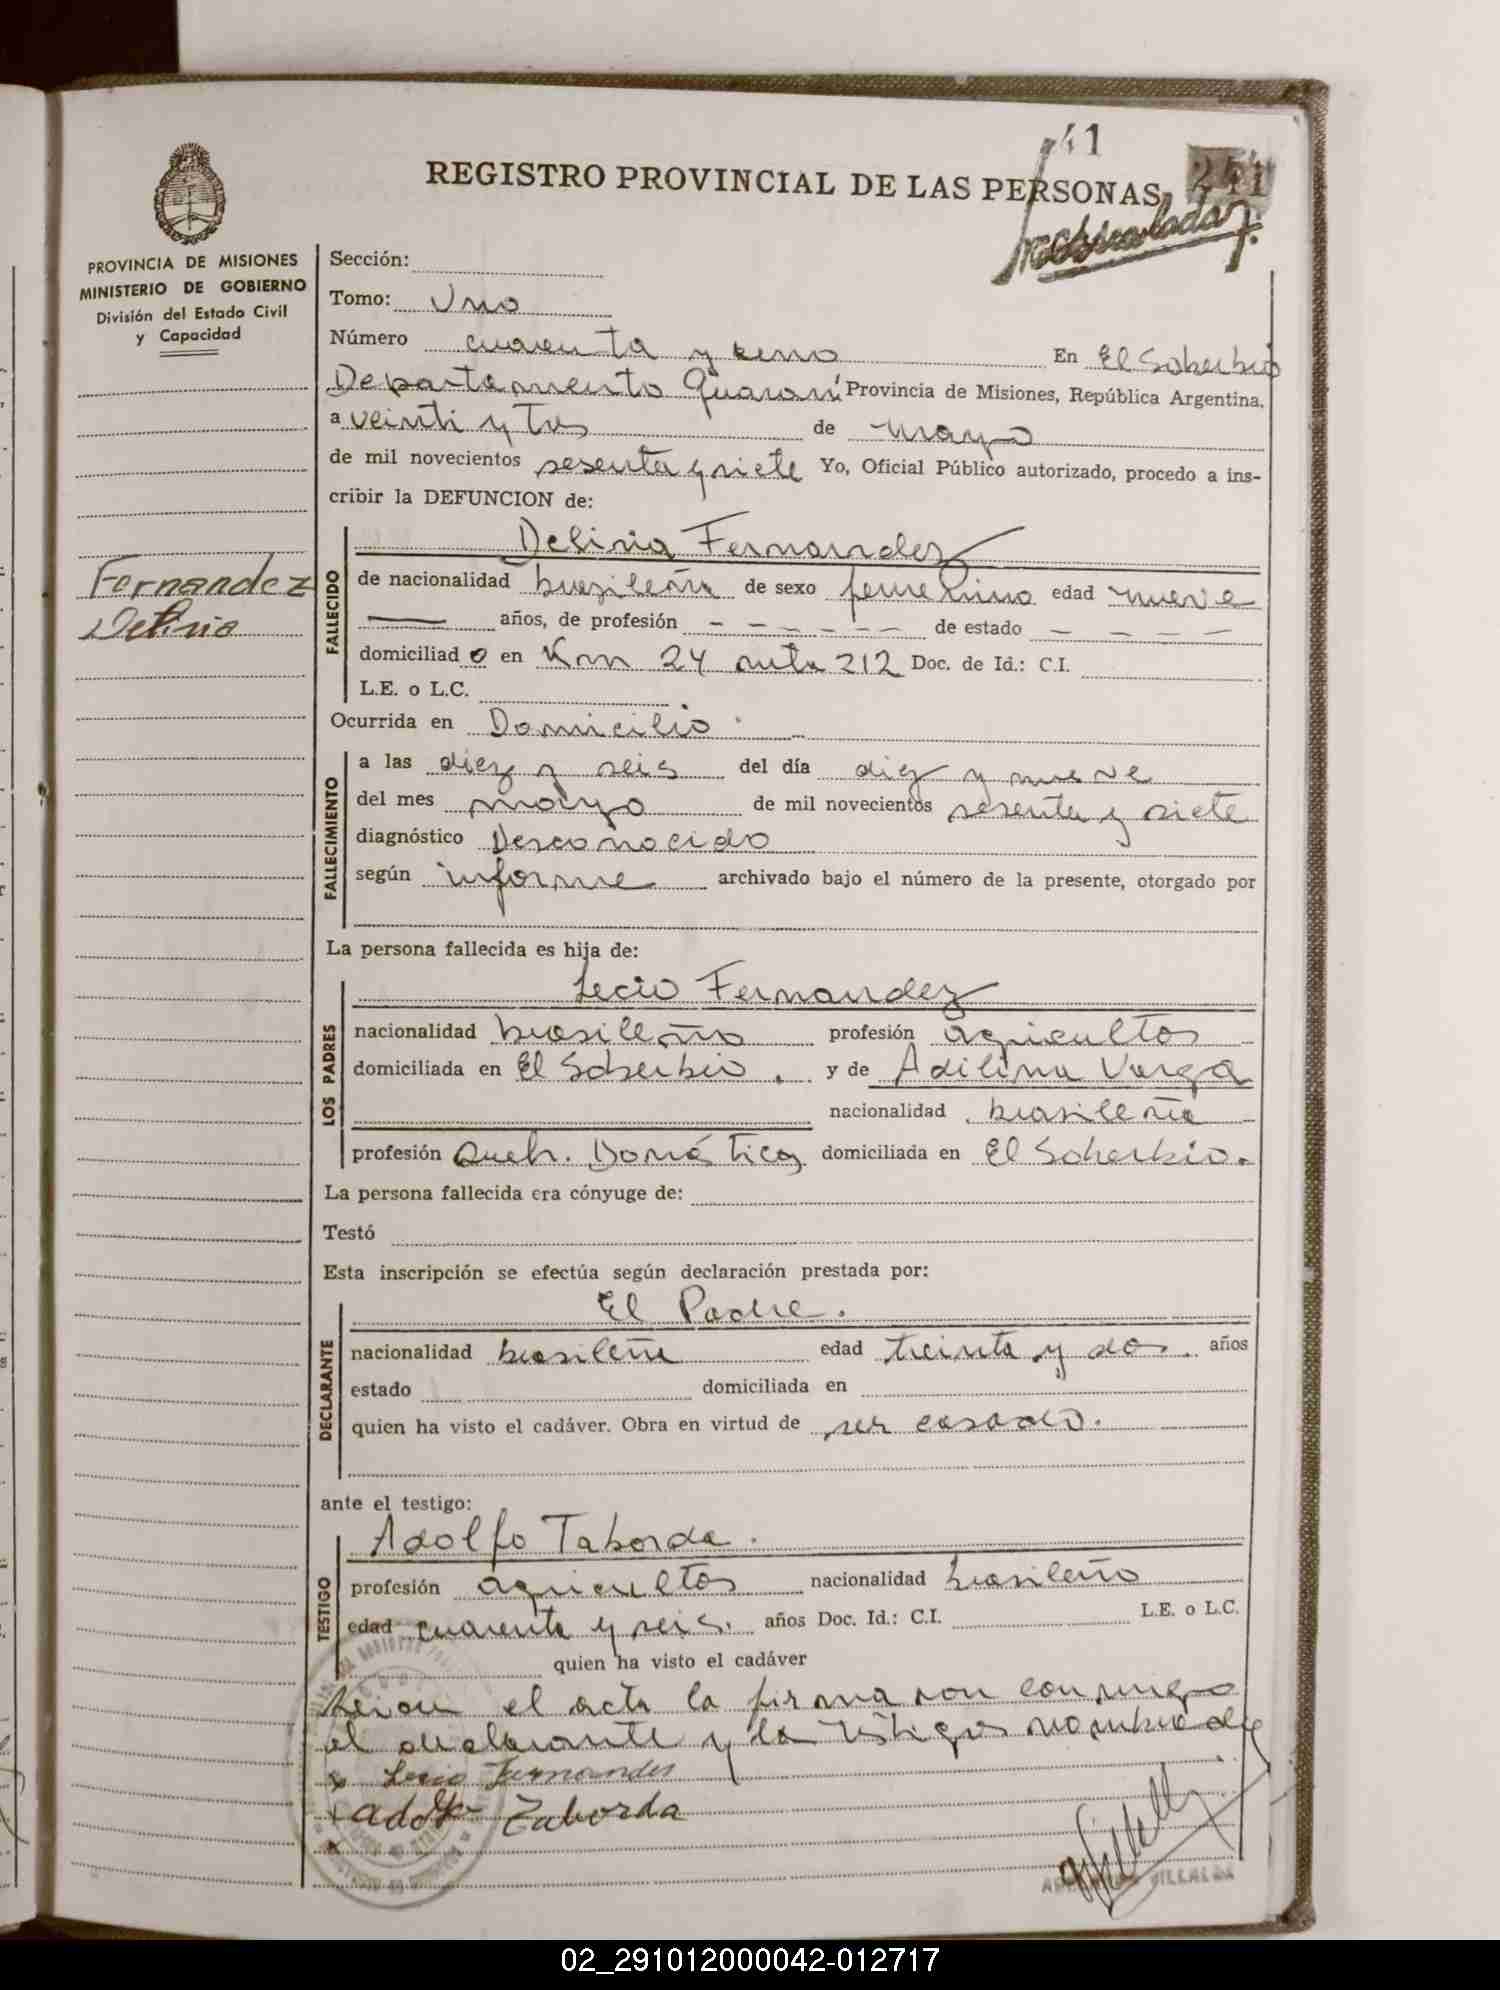 41
REGISTRO PROVINCIAL DE LAS PERSONAS
241
PROVINCIA DE MISIONES
MINISTERIO DE GOBIERNO
División del Estado Civil
y Capacidad
Sección:
Tomo: Uno
Número cuarenta y uno En El Soberbio
Departamento Guaraní Provincia de Misiones, República Argentina,
a veinti y tres de mayo
de mil novecientos sesenta y siete Yo, Oficial Público autorizado, procedo a ins-
cribir la DEFUNCION de:
Fernandez
Deliria
FALLECIDO
Deliria Fernandez
de nacionalidad brasileña de sexo femenino edad nueve
años, de profesión - - - - - - de estado - - - -
domiciliado en Km 24 ruta 212 Doc. de Id.: C.I.
L.E. o L.C.
Ocurrida en Domicilio
FALLECIMIENTO
a las diez y seis del día diez y nueve
del mes mayo de mil novecientos sesenta y siete
diagnóstico Desconocido
según informe archivado bajo el número de la presente, otorgado por
La persona fallecida es hija de:
LOS PADRES
Lecio Fernandez
nacionalidad brasileño profesión agricultor
domiciliada en El Soberbio. y de Adilina Varga
nacionalidad brasileña
profesión Queh. Domésticos domiciliada en El Soberbio.
La persona fallecida era cónyuge de:
Testó
Esta inscripción se efectúa según declaración prestada por:
DECLARANTE
El Padre.
nacionalidad brasileña edad treinta y dos. años
estado domiciliada en
quien ha visto el cadáver. Obra en virtud de ser casado.
ante el testigo:
TESTIGO
Adolfo Taborda.
profesión agricultor nacionalidad brasileño
edad cuarenta y seis. años Doc. Id.: C.I. L.E. o L.C.
quien ha visto el cadáver
el acta la firma con conmigo
el declarante y los testigos
Lecio Fernandes
Adolfo Taborda
VILLALBA
02_291012000042-012717